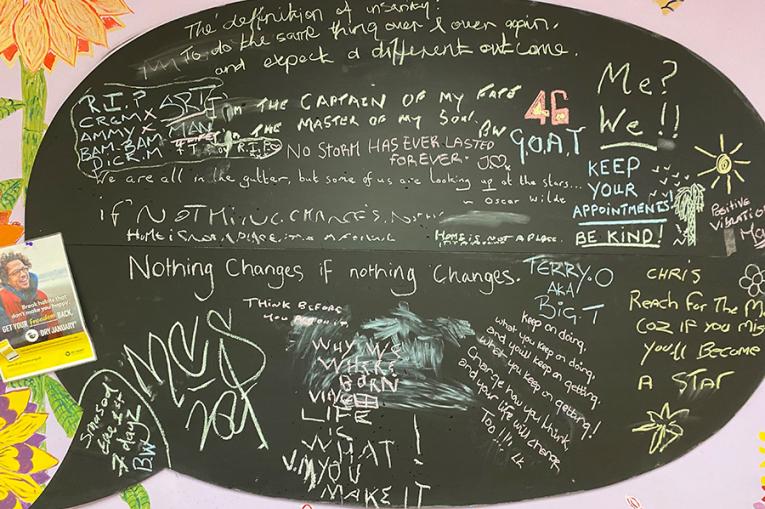 The definition of insanity:
To do the same thing over & over again.
and expect a different outcome.
R.I.P
CRGMX
AMMY X
BAM. BAM
DiCR.M
ART
MAN
I'm THE CAPTAIN OF MY FATE
I'm THE MASTER OF MY SOUL.
BW
NO STORM HAS EVER LASTED
FOREVER.
46
G.O.A.T
Me?
We!!
We are all in the gutter, but some of us are looking up at the stars...
~ Oscar Wilde
KEEP
YOUR
APPOINTMENTS!
BE KIND!
Positive
Vibration
Man
if NOTHING CHANGES,
HOME IS NOT A PLACE, it's A FEELING
HOME IS NOT A PLACE.
Nothing Changes if nothing Changes.
TERRY.O
AKA
BiG.T
CHRiS
REACH FOR THE M
COZ IF YOU MIS
You'll BECOME
A STAR
THINK BEFORE
Keep on doing,
what you keep on doing,
and you'll keep on getting,
what you keep on getting!
Change how you think,
and your life will change
Too!!!
WHY WE
WHERE
BORN
LIFE
WHAT!
YOU
MAKE IT
7 dayz
BW
Break habits that
don't make you happy.
GET YOUR freedom BACK,
DRY JANUARY